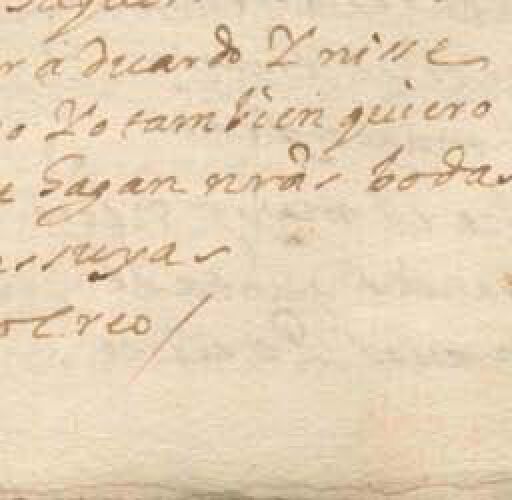 ra duardo Y nisse
o Yo tambien quiero
Hagan nras bodas
suyas
creo /